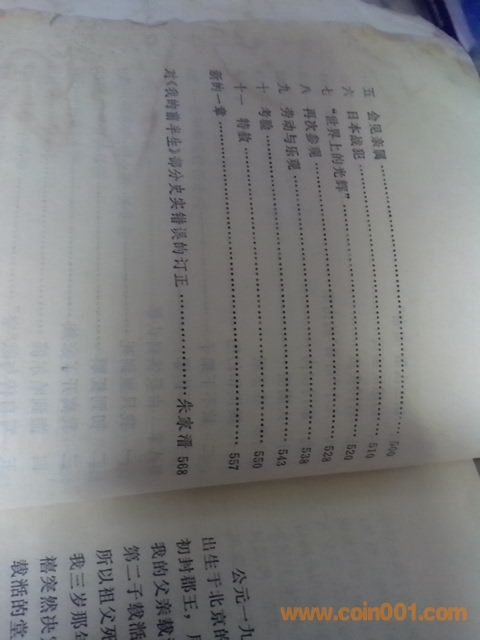 五 会见亲属 500
六 日本战犯 510
七 “世界上的光辉” 520
八 再次参观 528
九 劳动与乐观 538
十 考验 543
十一 特赦 550
新的一章 557
对《我的前半生》部分史实错误的订正 朱家溍 568
公元一九
出生于北京的
初封郡王，
我的父亲载
第二子载湉
所以祖父死
我三岁那
禧突然决
载湉的堂
www.coin001.com